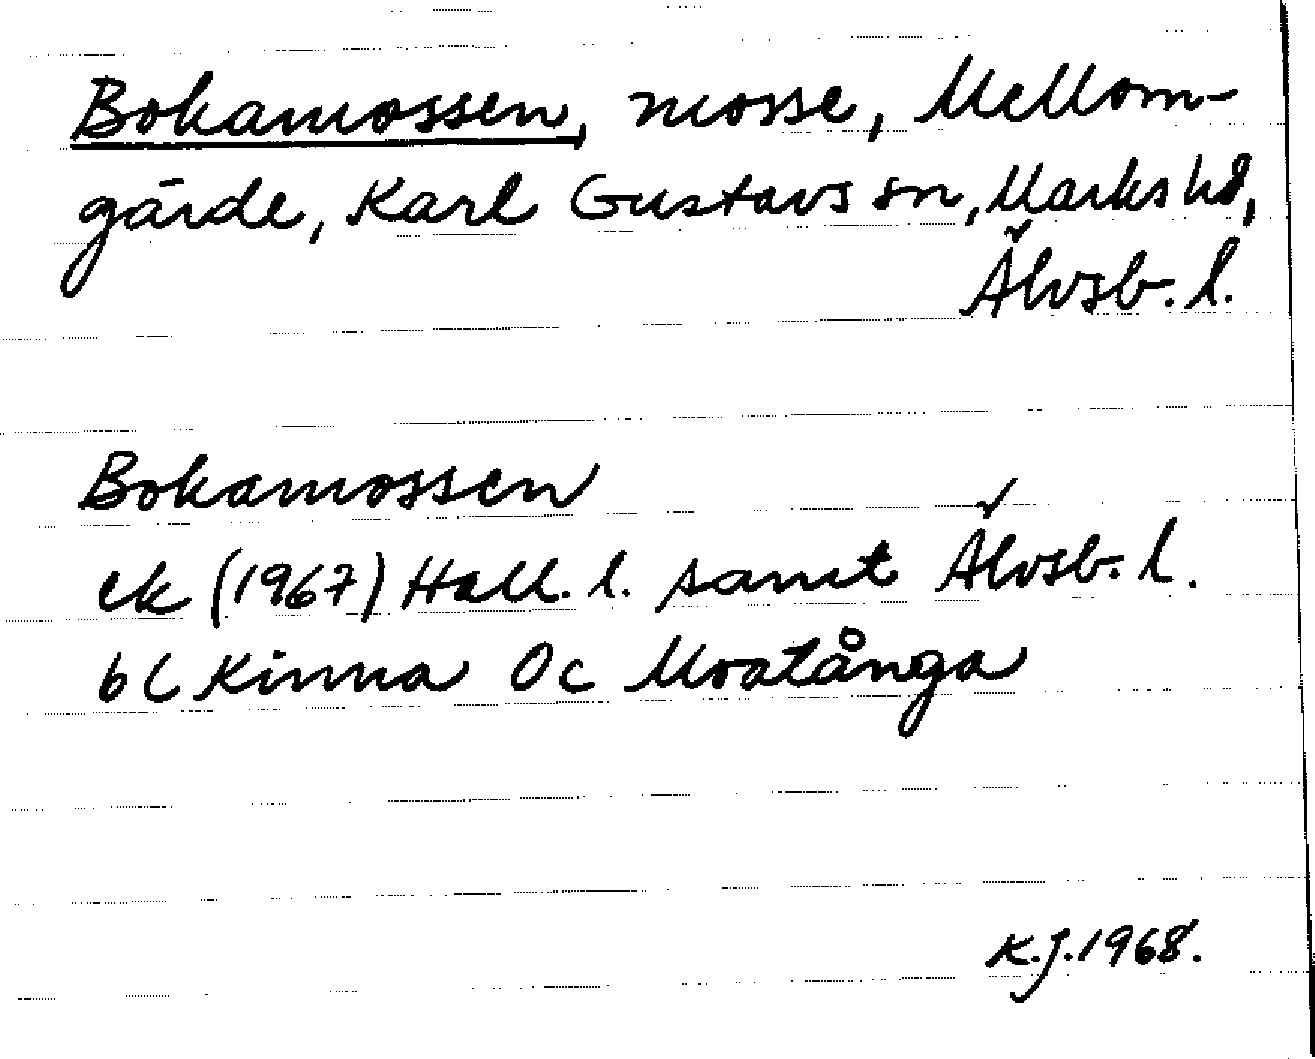 Bokamossen, mosse, Mellom-
gärde, Karl Gustavs sn, Marks hd,
Älvsb. l.
Bokamossen
ek (1967) Hall. l. samt Älvsb. l.
6 C Kinna 0c Moatånga
K.J. 1968.